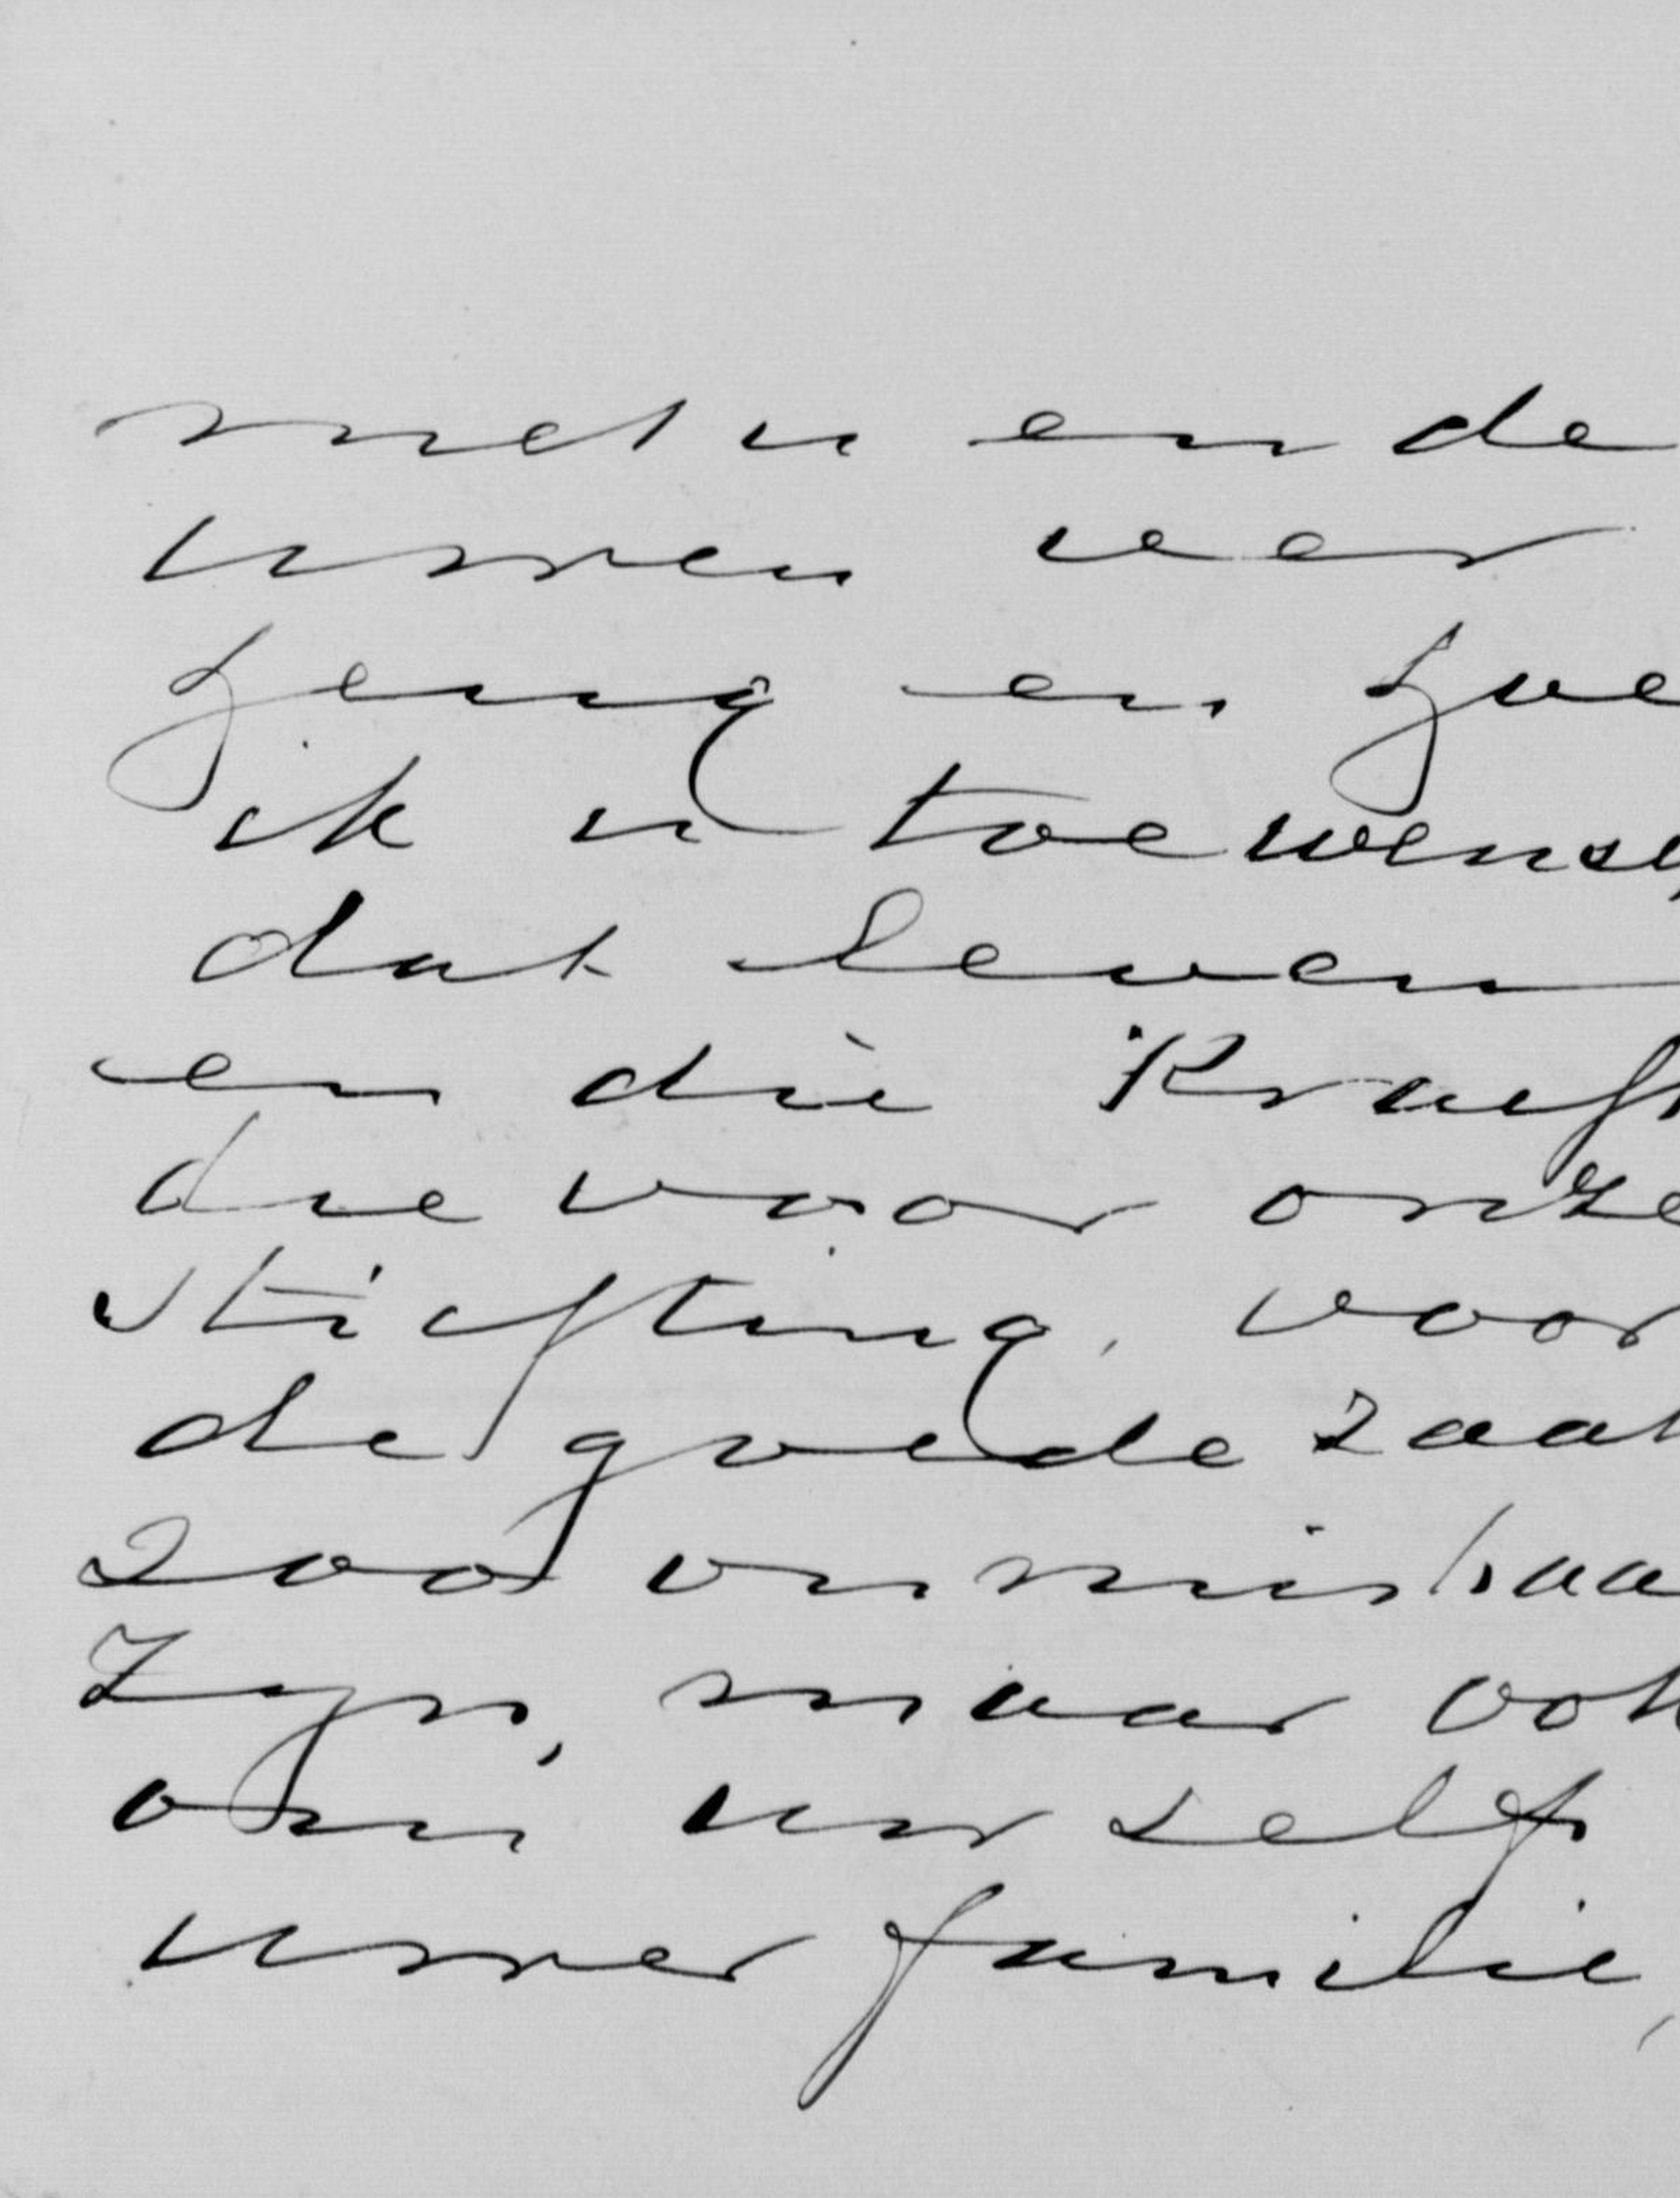 met u en de
uwen veer
heug en hoe
ik u toewensch
dat leven
en die Kracht
die voor onze
Stichting, voor
de goede zaak
zoo onmisbaar
Zijn, maar ook
om uw zelf
uwer familie,